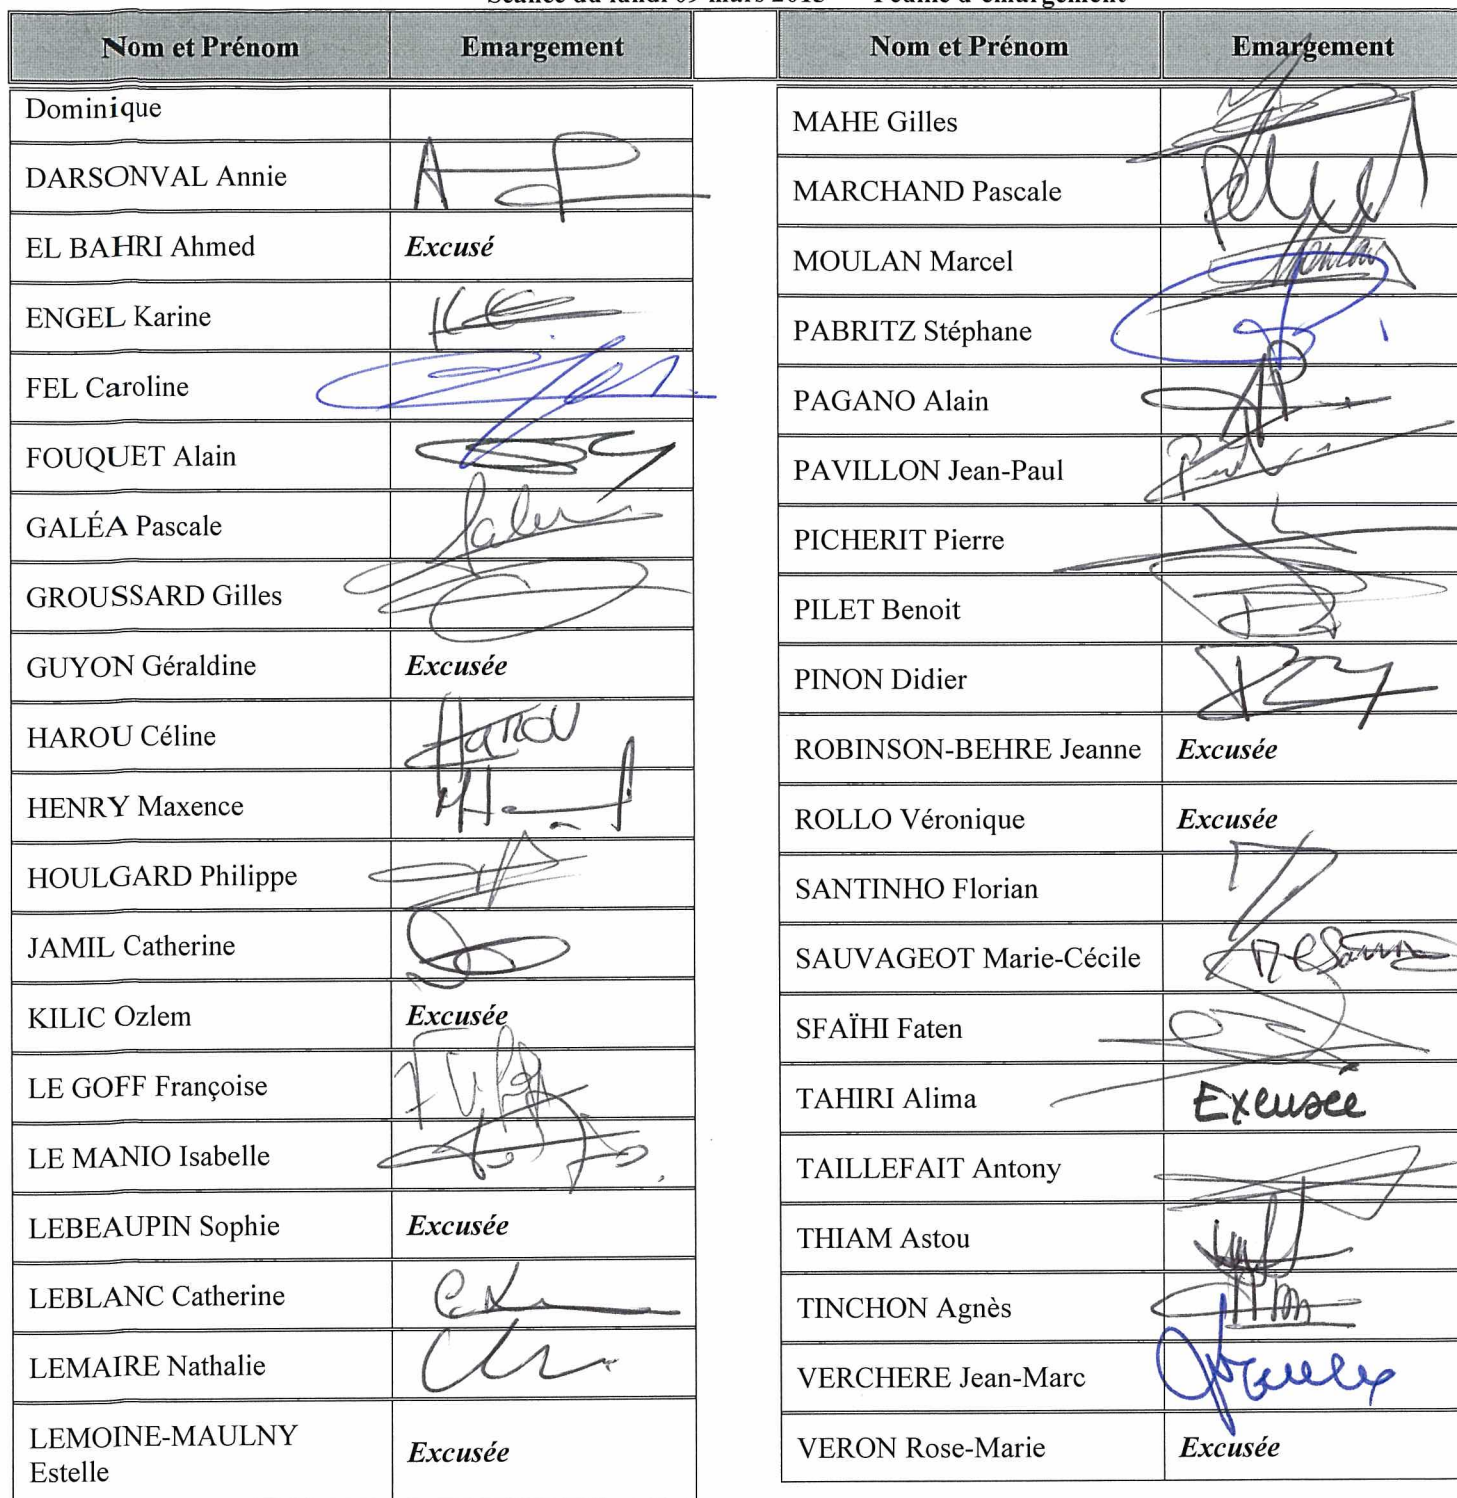 Séance du lundi 09 mars 2015 Feuille d'émargement
Nom et Prénom Emargement
Dominique
DARSONVAL Annie
EL BAHRI Ahmed Excusé
ENGEL Karine
FEL Caroline
FOUQUET Alain
GALÉA Pascale
GROUSSARD Gilles
GUYON Géraldine Excusée
HAROU Céline Harou
HENRY Maxence
HOULGARD Philippe
JAMIL Catherine
KILIC Ozlem Excusée
LE GOFF Françoise
LE MANIO Isabelle
LEBEAUPIN Sophie Excusée
LEBLANC Catherine
LEMAIRE Nathalie
LEMOINE-MAULNY
Estelle Excusée
Nom et Prénom Emargement
MAHE Gilles
MARCHAND Pascale
MOULAN Marcel
PABRITZ Stéphane
PAGANO Alain
PAVILLON Jean-Paul
PICHERIT Pierre
PILET Benoit
PINON Didier
ROBINSON-BEHRE Jeanne Excusée
ROLLO Véronique Excusée
SANTINHO Florian
SAUVAGEOT Marie-Cécile
SFAÏHI Faten
TAHIRI Alima Excusée
TAILLEFAIT Antony
THIAM Astou
TINCHON Agnès
VERCHERE Jean-Marc
VERON Rose-Marie Excusée